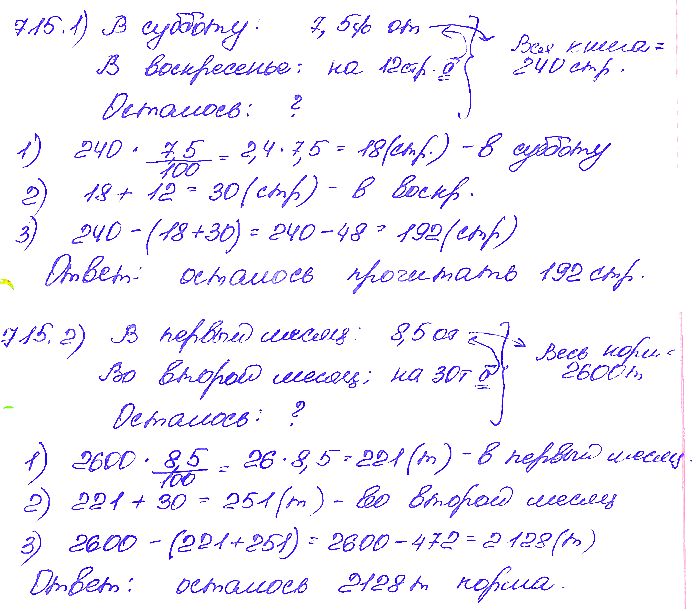 715.1) В субботу: 7,5% от
В воскресенье: на 12стр. б
Вся книга = 240 стр.
Осталось: ?
1) 240 · 7,5/100 = 2,4 · 7,5 = 18(стр.) - в субботу
2) 18 + 12 = 30(стр) - в воскр.
3) 240 - (18+30) = 240 - 48 = 192(стр)
Ответ: осталось прочитать 192 стр.
715.2) В первый месяц: 8,5 от
Во второй месяц: на 30т б
Весь корм = 2600 т
Осталось: ?
1) 2600 · 8,5/100 = 26 · 8,5 = 221(т) - в первый месяц.
2) 221 + 30 = 251(т) - во второй месяц
3) 2600 - (221+251) = 2600 - 472 = 2128(т)
Ответ: осталось 2128т корма.